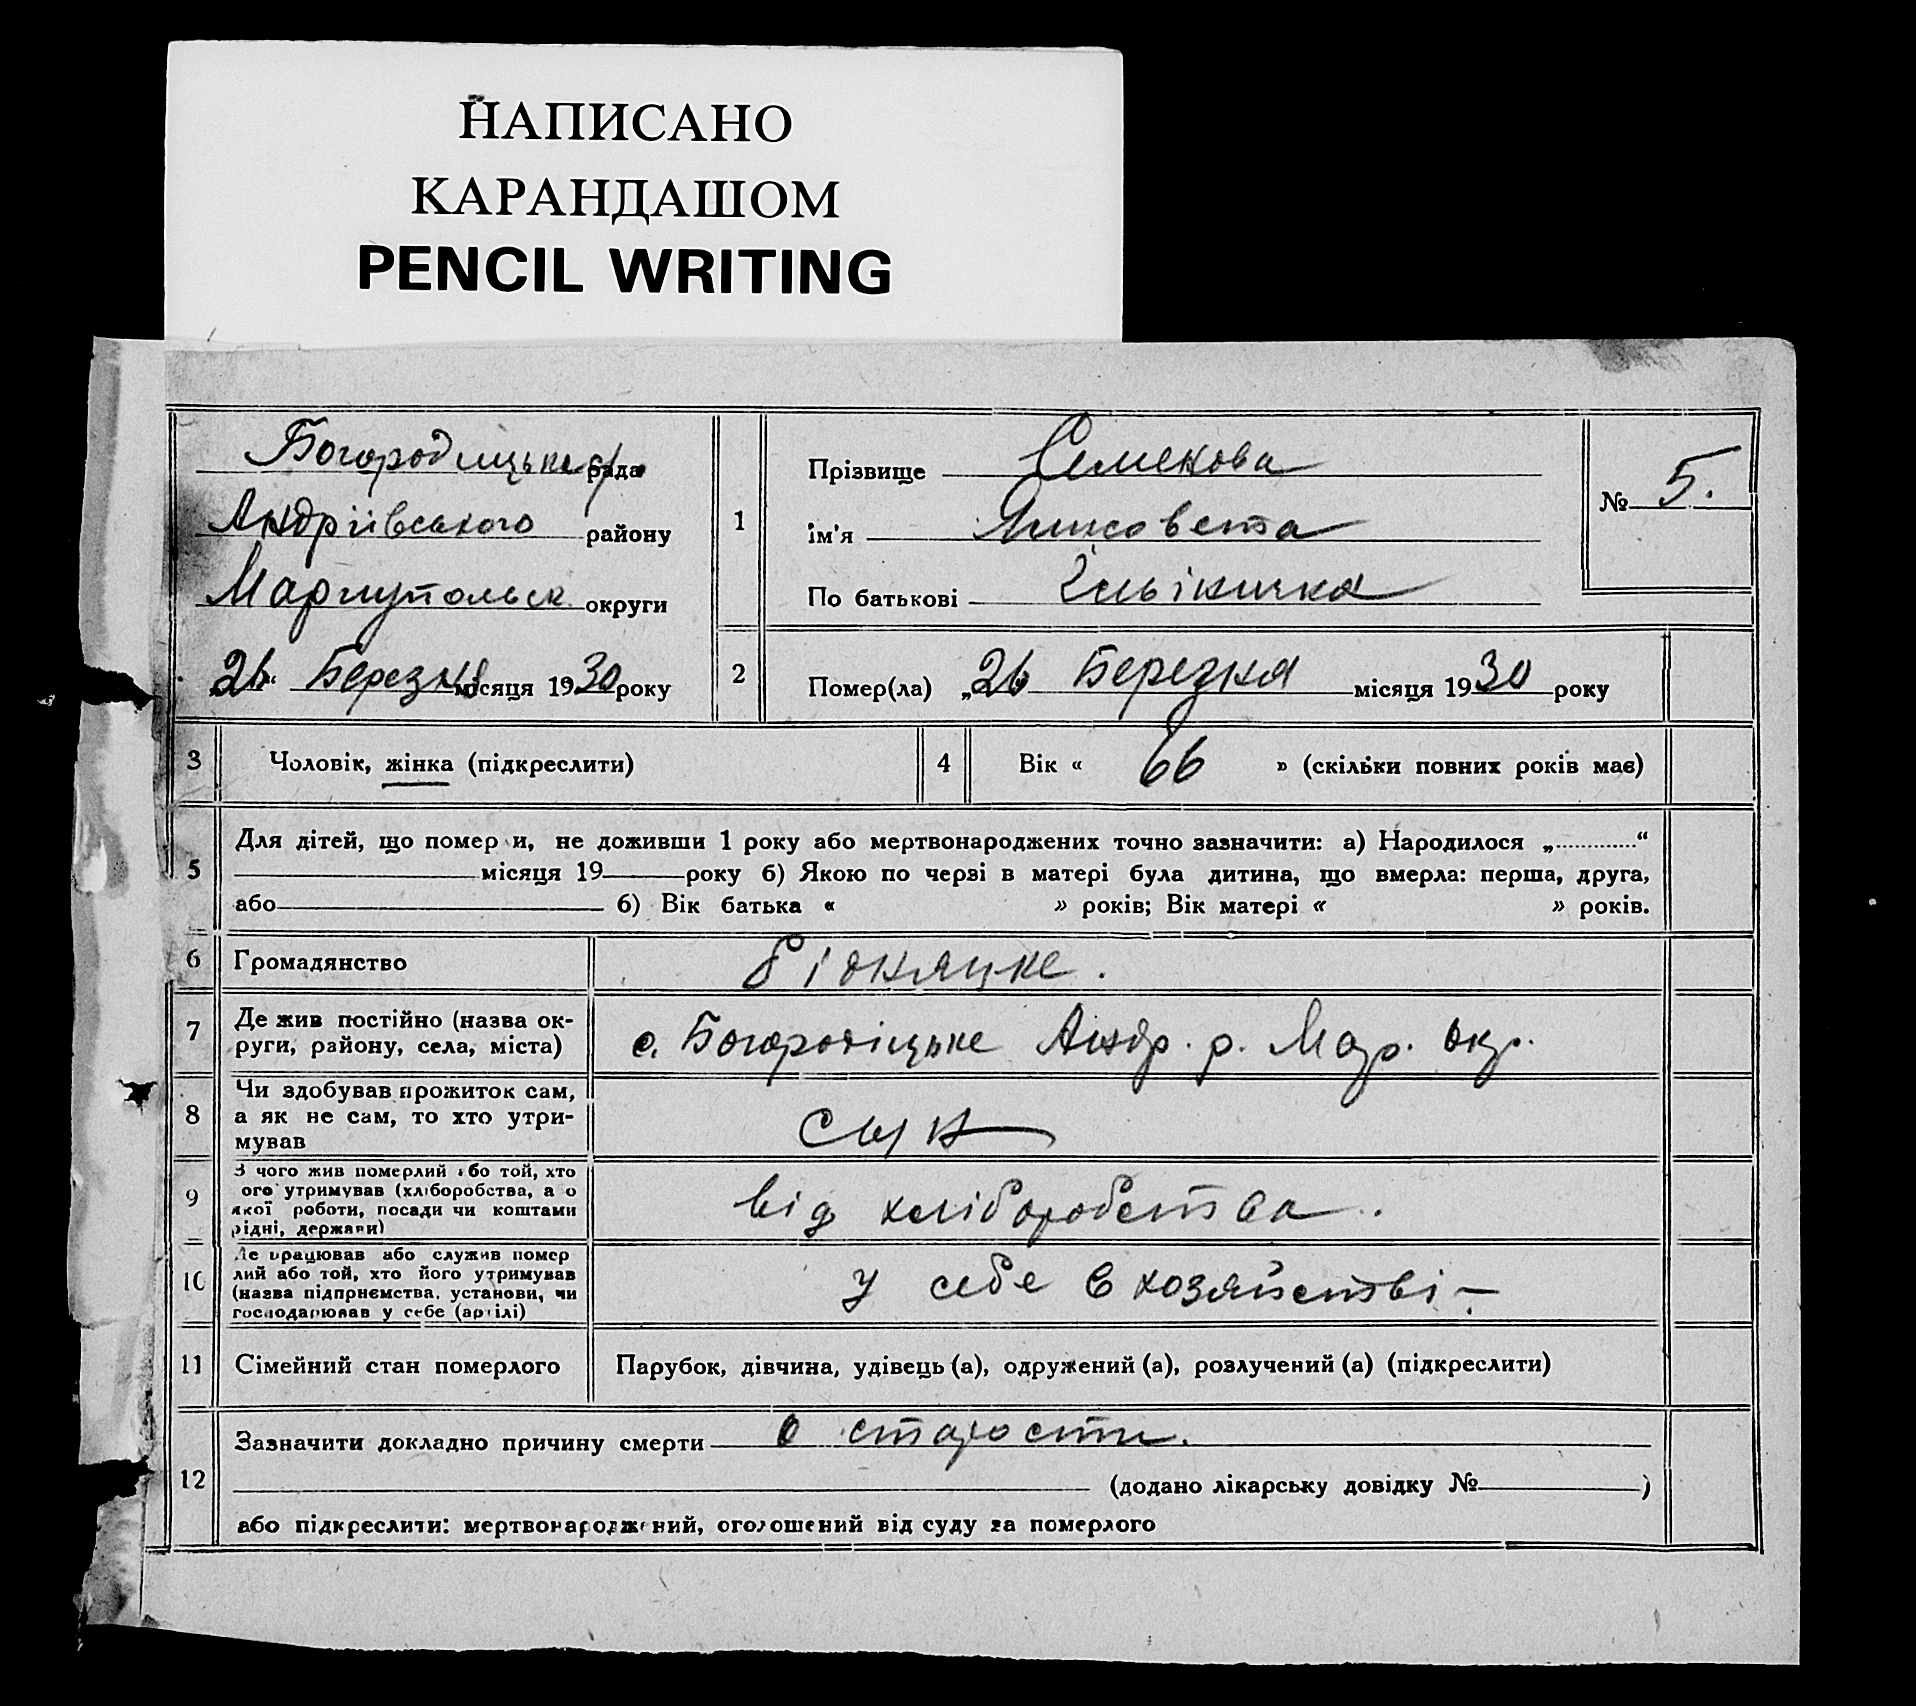 НАПИСАНО
КАРАНДАШОМ
PENCIL WRITING
Богородицьке с/р. рада
Андріівського району
Маріупольск округи
„26“ Березня місяця 1930 року
1
Прізвище Семенова
ім'я Єлисовета
По батькові Ільінична
№ 5.
2
Помер(ла) „26 Березня місяця 1930 року
3 Чоловік, жінка (підкреслити)
4 Вік « 66 » (скільки повних років має)
5 Для дітей, що помер и, не доживши 1 року або мертвонароджених точно зазначити: а) Народилося „............“
місяця 19 року б) Якою по черзі в матері була дитина, що вмерла: перша, друга,
або б) Вік батька « » років; Вік матері « » років.
6 Громадянство бідняцке.
7 Де жив постійно (назва ок-
руги, району, села, міста)
с. Богородіцьке Андр. р. Мар. окр.
8 Чи здобував прожиток сам,
а як не сам, то хто утри-
мував
сын
9 З чого жив померлий або той, хто
ого утримував (хліборобства, а о
якої роботи, посади чи коштами
рідні, держави)
від хліборобства.
10 Де працював або служив помер
лий або той, хто його утримував
(назва підпрнємства, установи, чи
господарював у себе (артілі)
У себе в хозяйстві —
11 Сімейний стан померлого
Парубок, дівчина, удівець (а), одружений (а), розлучений (а) (підкреслити)
12 Зазначити докладно причину смерти о старости.
(додано лікарську довідку № )
або підкреслити: мертвонароджений, оголошений від суду за померлого